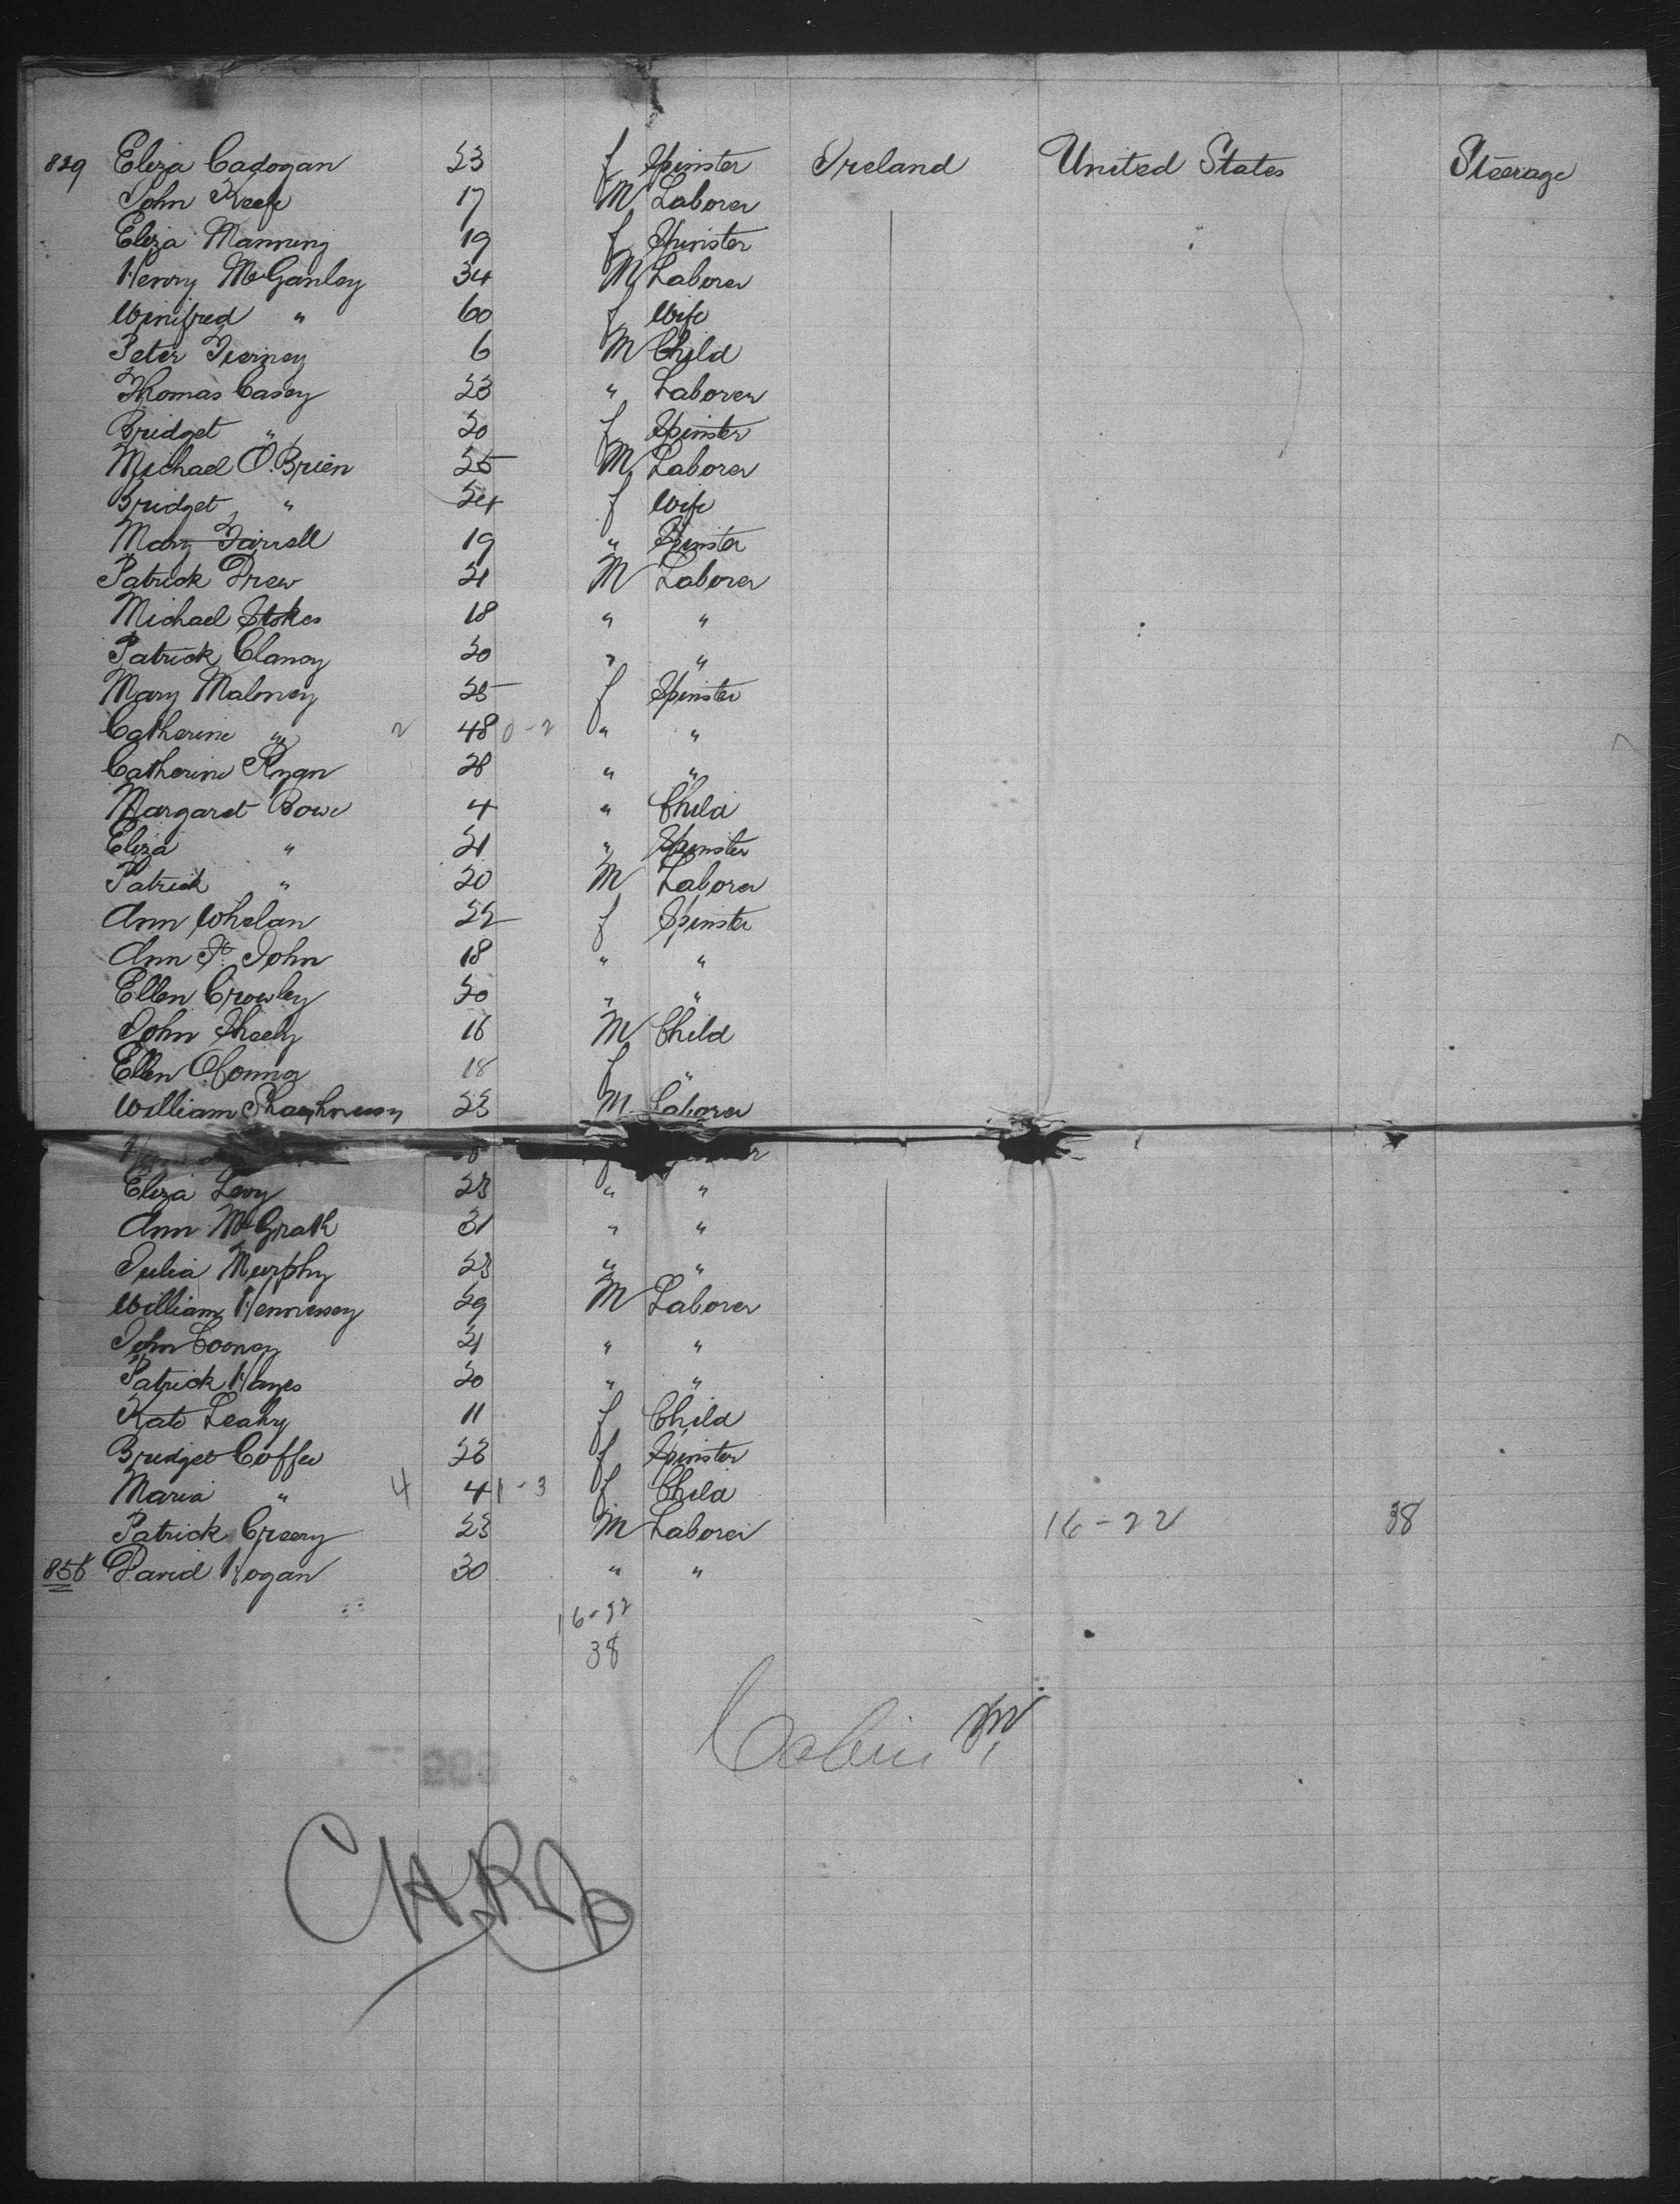 829 Eliza Cadogan 23 f Spinster Ireland United States Steerage
John Keefe 17 M Laborer
Eliza Manning 19 f Spinster
Henry McGanley 34 M Laborer
Winifred " 60 f Wife
Peter Tierney 6 M Child
Thomas Casey 23 " Laborer
Bridget " 20 f Spinster
Michael O'Brien 25 M Laborer
Bridget " 24 f Wife
Mary Farrell 19 " Spinster
Patrick Drew 21 M Laborer
Michael Stokes 18 " "
Patrick Clancy 20 " "
Mary Maloney 25 f Spinster
Catherine " 2 48 0-2 " "
Catherine Ryan 28 " "
Margaret Bowe 4 " Child
Eliza " 21 " Spinster
Patrick " 20 M Laborer
Ann Whelan 22 f Spinster
Ann St. John 18 " "
Ellen Crowley 20 " "
John Sheely 16 M Child
Ellen O'Connor 18 f "
William Shaughnessy 23 M Laborer
Eliza Levy 23 " "
Ann McGrath 31 " "
Julia Murphy 23 " "
William Hennessey 29 M Laborer
John Cooney 21 " "
Patrick Hayes 20 " "
Kate Leahy 11 f Child
Bridget Coffee 26 f Spinster
Maria " 4 4 1-3 f Child
Patrick Creery 23 M Laborer 16-22 38
856 David Hogan 30 " "
16-22
38
Cabin